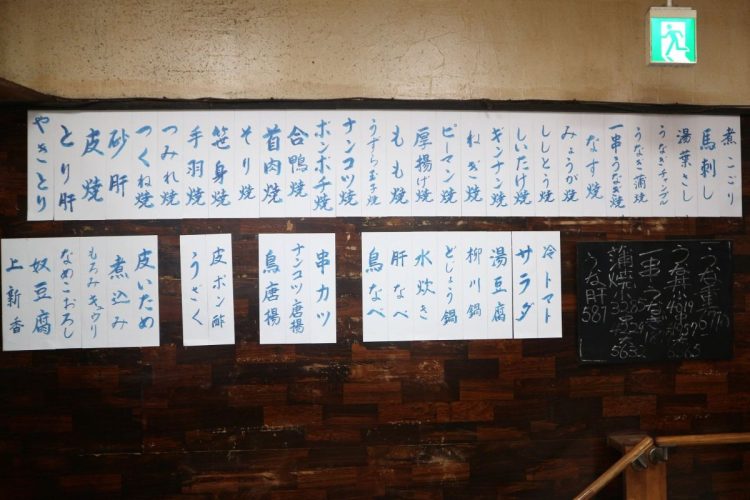 煮こごり
馬刺し
湯葉さし
うなぎチャンプル
うなぎ蒲焼
一串うなぎ焼
なす焼
みょうが焼
ししとう焼
しいたけ焼
ギンナン焼
ねぎ焼
ピーマン焼
厚揚げ焼
もも焼
うずら玉子焼
ナンコツ焼
ボンボチ焼
合鴨焼
首肉焼
そり焼
笹身焼
手羽焼
つみれ焼
つくね焼
砂肝
皮焼
とり肝
やきとり
冷トマト
サラダ
湯豆腐
柳川鍋
どじょう鍋
水炊き
肝なべ
鳥なべ
串カツ
ナンコツ唐揚
鳥唐揚
皮ポン酢
うざく
皮いため
煮込み
もろみキュウリ
なめこおろし
奴豆腐
上新香
うな肝587